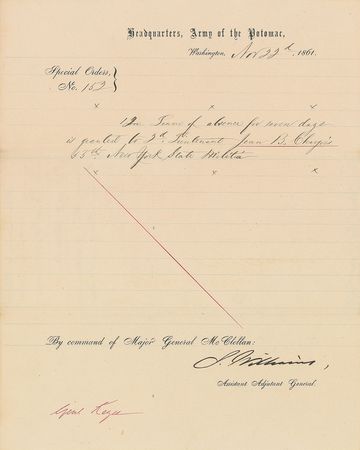 Headquarters, Army of the Potomac,
Washington, Nov 22d, 1861.
Special Orders,
No. 152
x x x
Leave of absence for seven days
is granted to 2d Lieutenant Jean B.
55th New York State Militia
x x x
By command of Major General McClellan:
S. Williams,
Assistant Adjutant General.
Genl Keyes